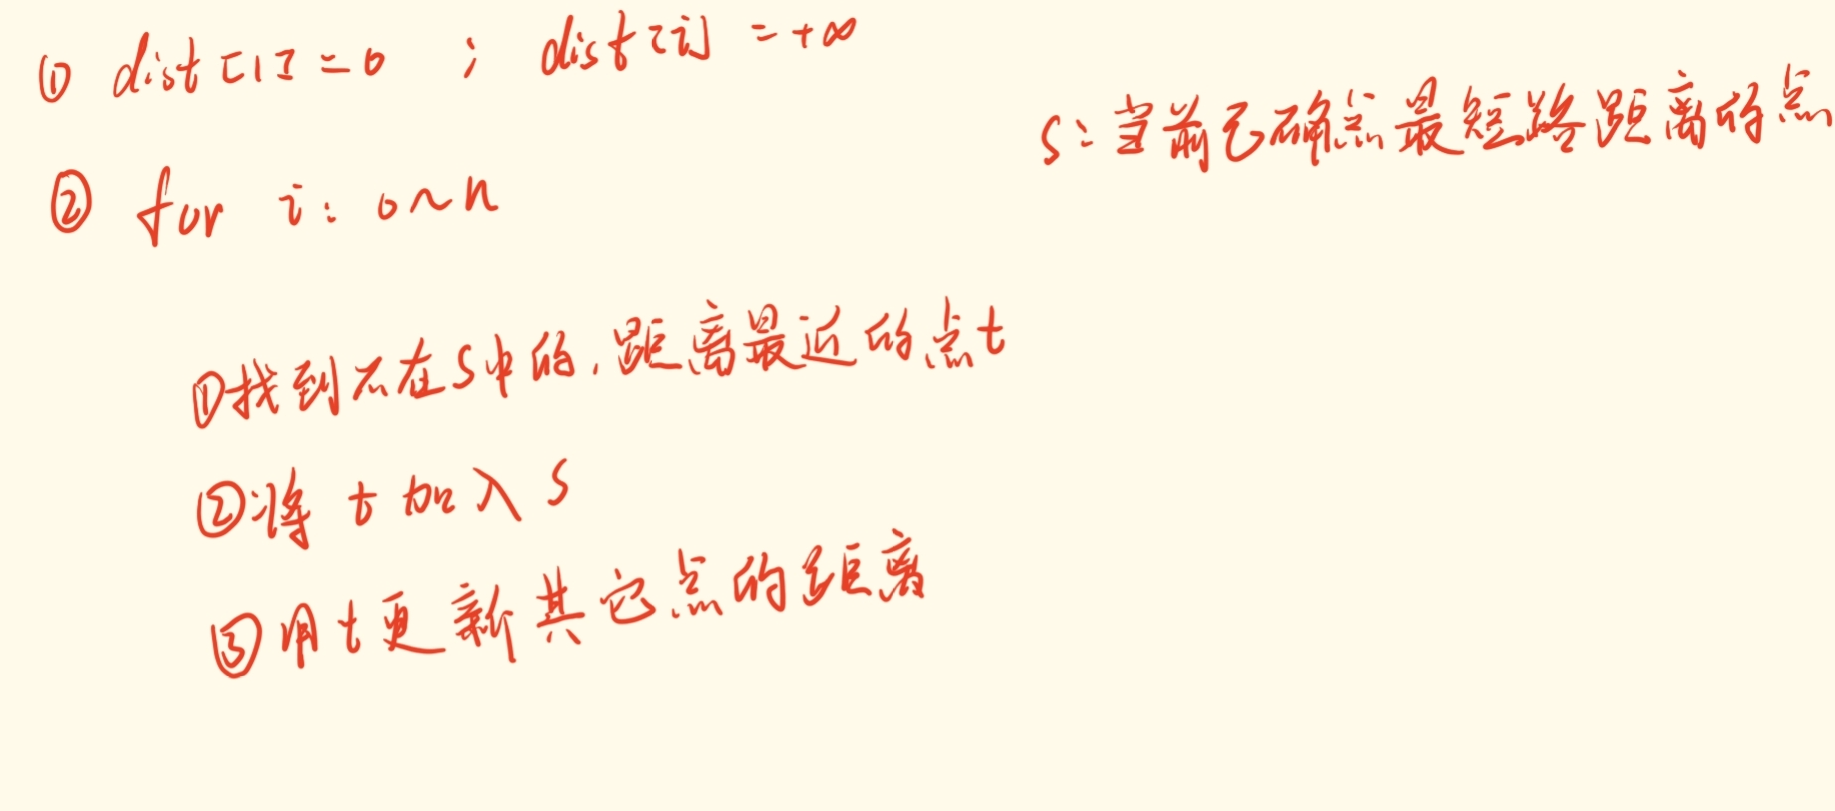 ① dist[1]=0 ; dist[i] =+∞
S:当前已确定最短路距离的点
② for i: 0~n
①找到不在S中的,距离最近的点t
②将 t 加入 S
③用t更新其它点的距离